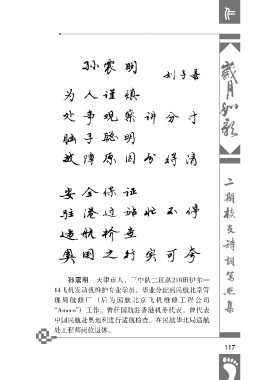 孙震明
刘子善
为人谨慎
处事观察讲分寸
脑子聪明
故障原因分得清
安全保证
驻港返站忙不停
适航检查
奥国之行实可夸
孙震明 天津市人,三中队二区队210班伊尔—
14飞机发动机维护专业学员。毕业分配到民航北京管
理局航修厂(后为国航北京飞机维修工程公司
“Ameco”)工作。曾任国航驻香港机务代表。曾代表
中国民航赴奥地利进行适航检查。在民航华北局适航
处工程师岗位退休。
岁月如歌
二期校友诗词写照集
117